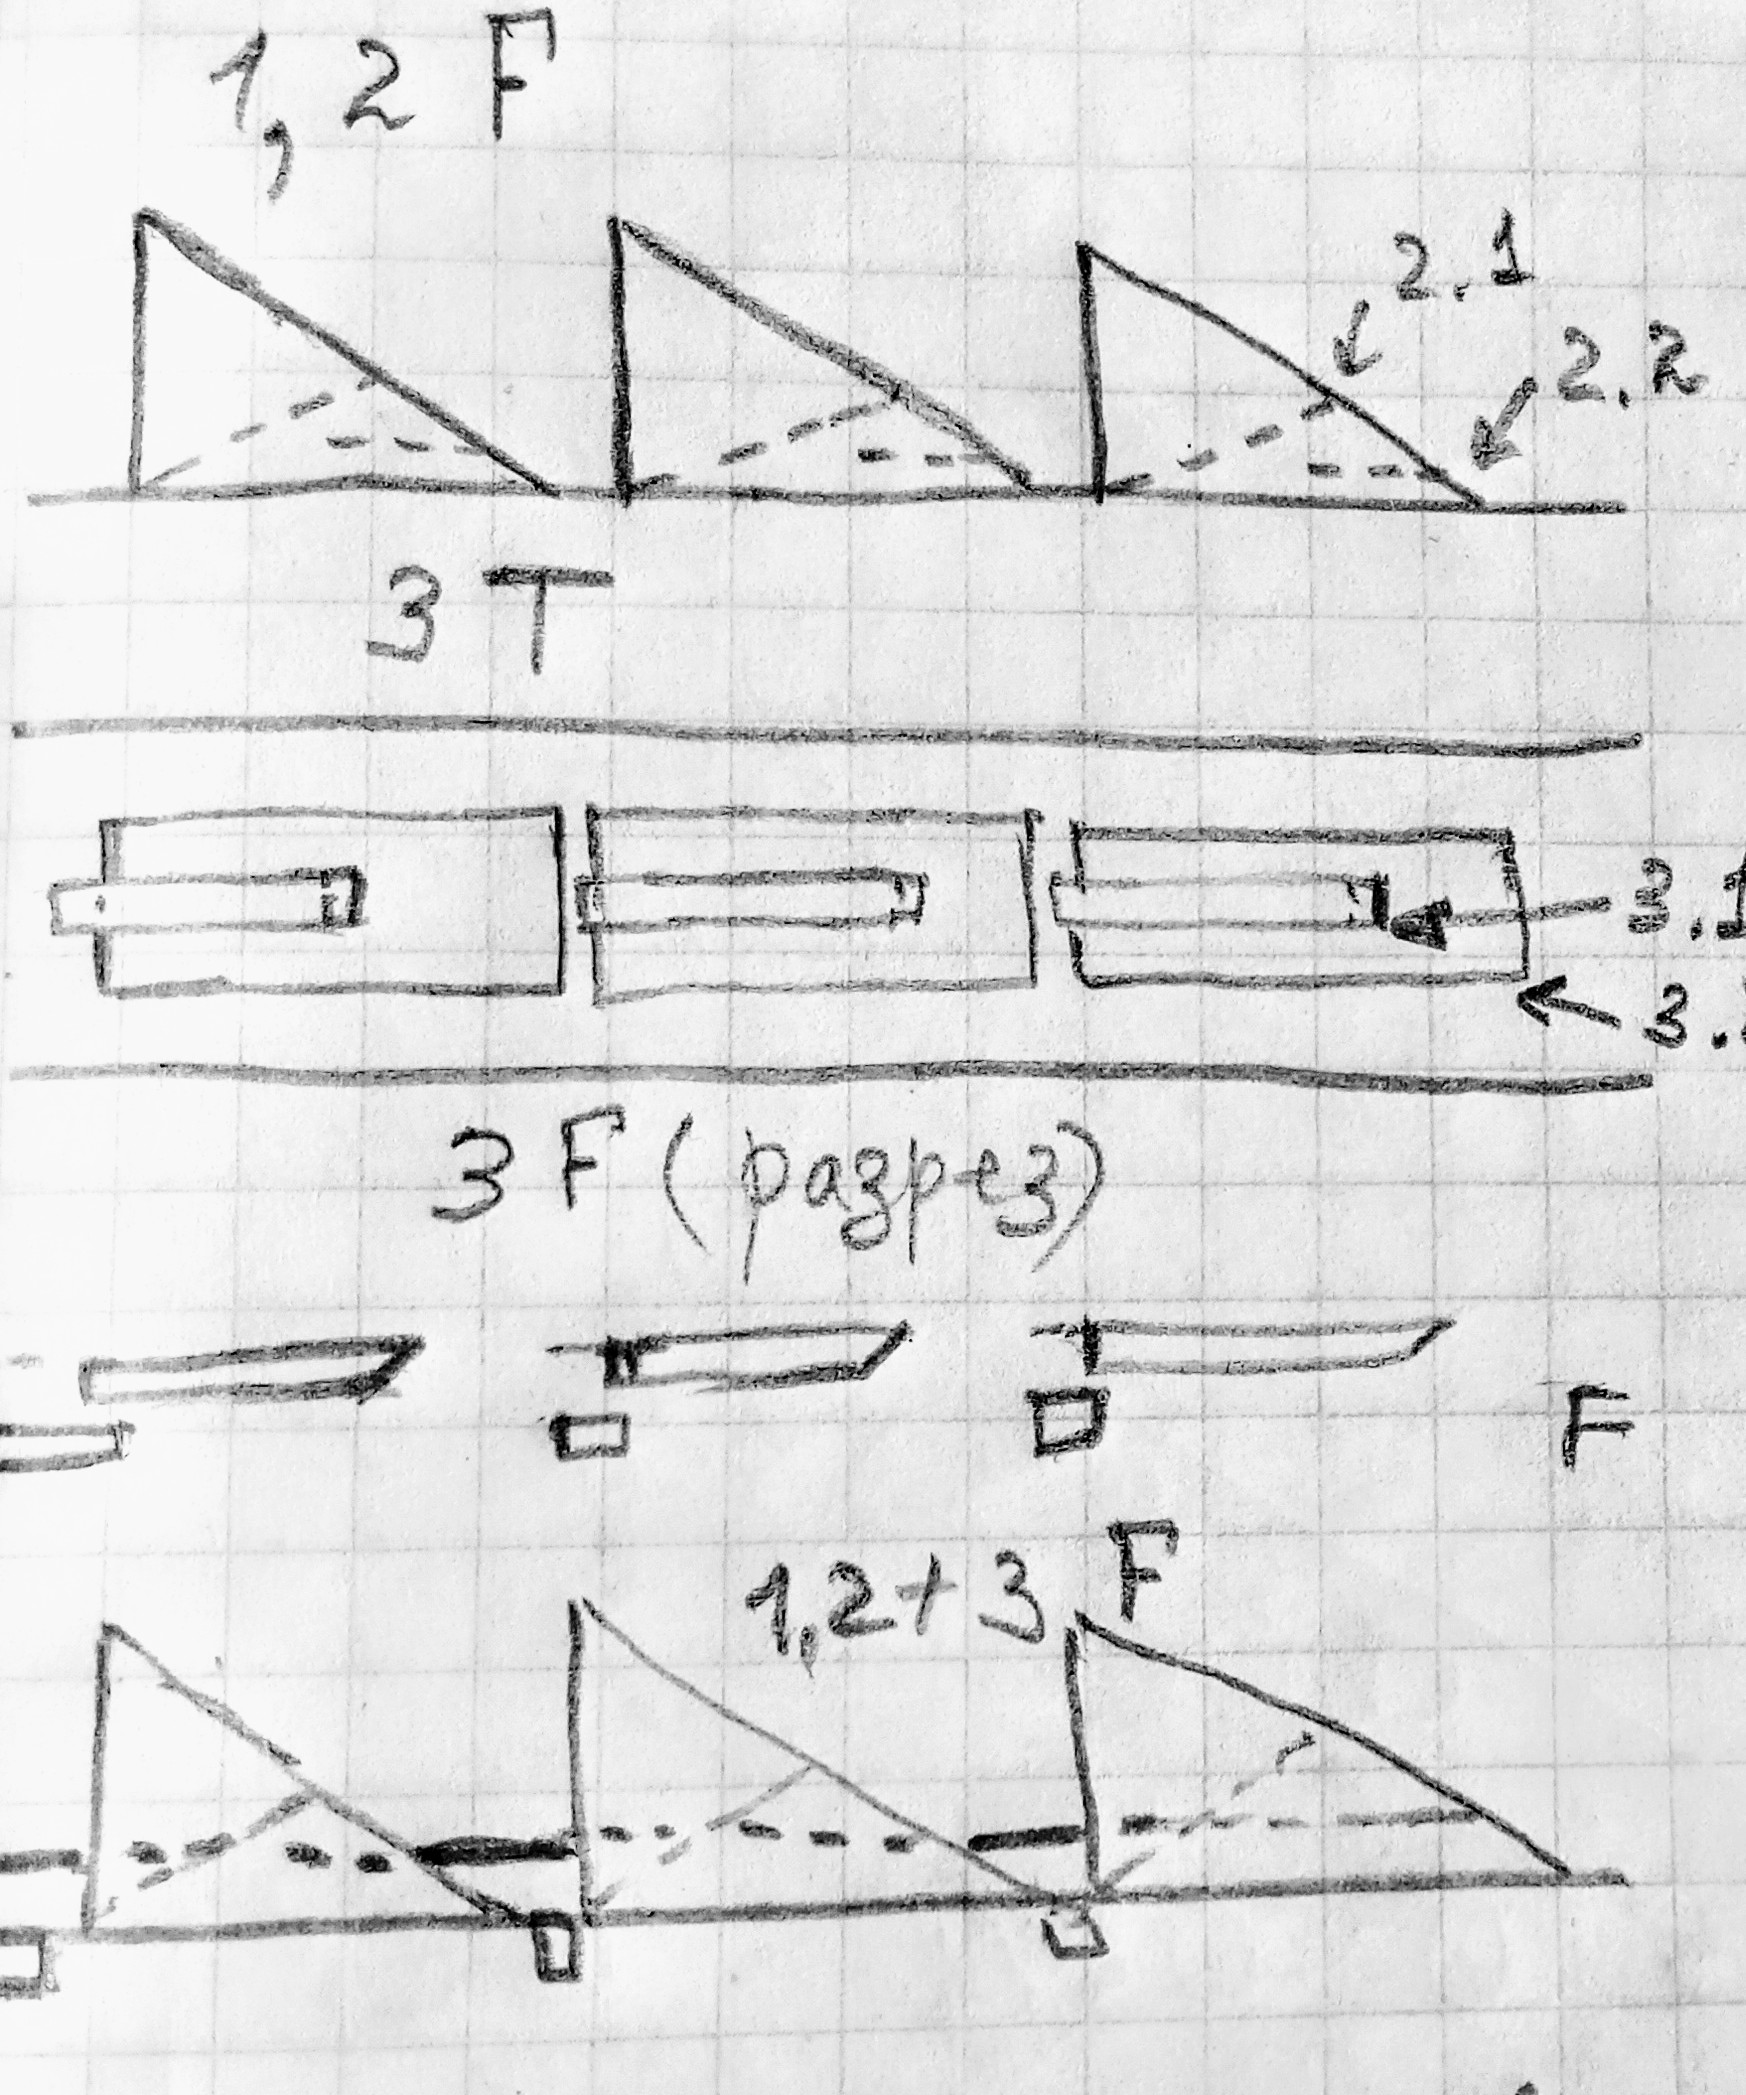 1, 2 F
2.1
2.2
3 T
3.1
3.
3 F (разрез)
F
1,2+3 F